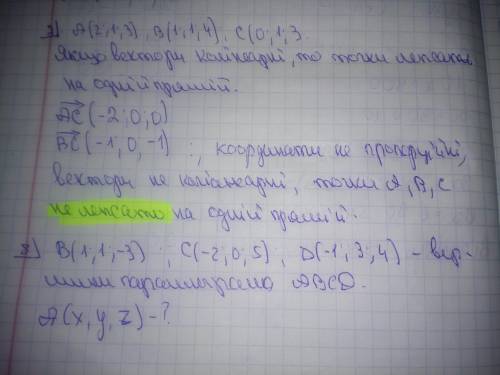 7) A(2;1;3), B(1;1;4), C(0;1;3
Якщо вектори колінеарні, то точки лежать
на одній прямій.
AC (-2; 0; 0)
BC (-1; 0; -1) ; координати не пропорційні,
вектори не колінеарні, точки A, B, C
не лежать на одній прямій.
8) B(1; 1; -3) ; C(-2; 0; 5) ; D(-1; 3; 4) - вер-
шини паралелограма ABCD.
A(x, y, z) - ?